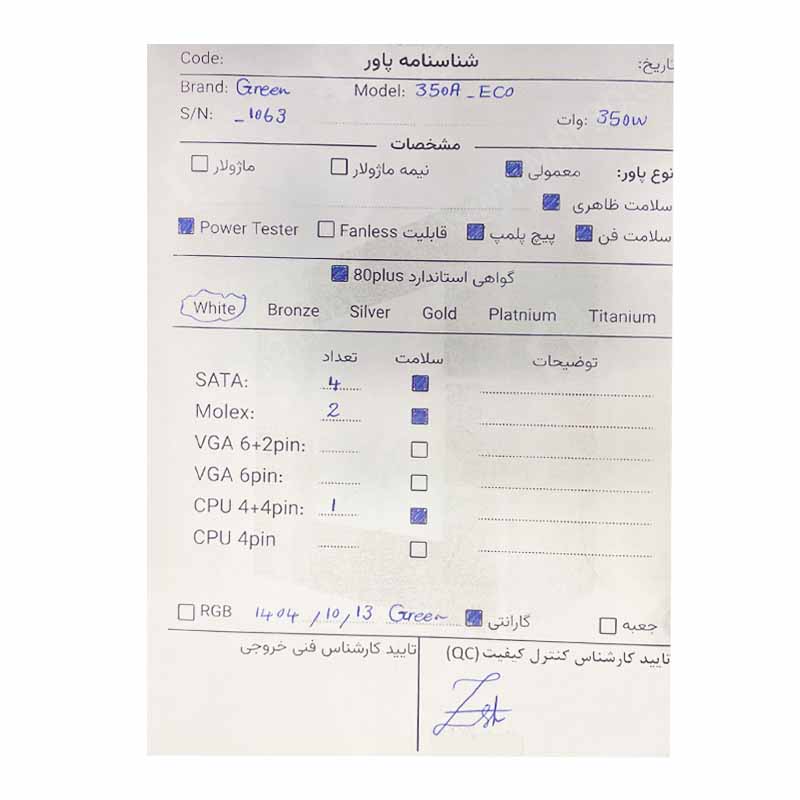 Code: شناسنامه پاور تاریخ:
Brand: Green Model: 350A_ECO
S/N: _1063 وات: 350W
مشخصات
نوع پاور: معمولی نیمه ماژولار ماژولار
سلامت ظاهری
سلامت فن پیچ پلمپ قابلیت Fanless Power Tester
گواهی استاندارد 80plus
White Bronze Silver Gold Platnium Titanium
تعداد سلامت توضیحات
SATA: 4
Molex: 2
VGA 6+2pin:
VGA 6pin:
CPU 4+4pin: 1
CPU 4pin
RGB 1404/10/13 Green گارانتی جعبه
تایید کارشناس کنترل کیفیت (QC) تایید کارشناس فنی خروجی